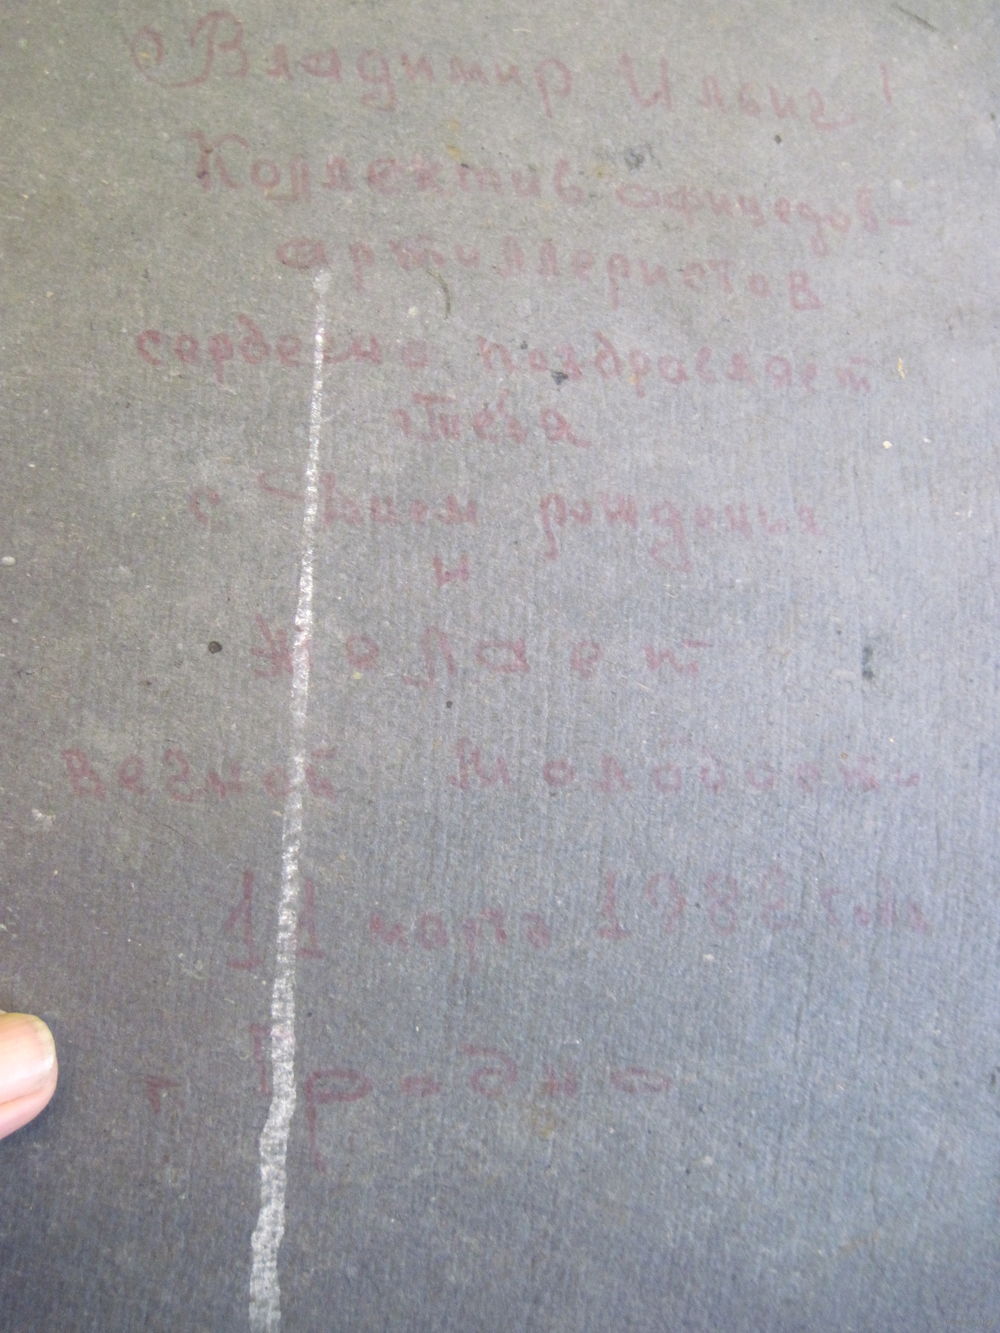 Владимир Ильич!
Коллектив офицеров-
артиллеристов
сердечно поздравляет
Тебя
с Днем рождения
и
желает
вечной молодости
11 марта
г. Гродно